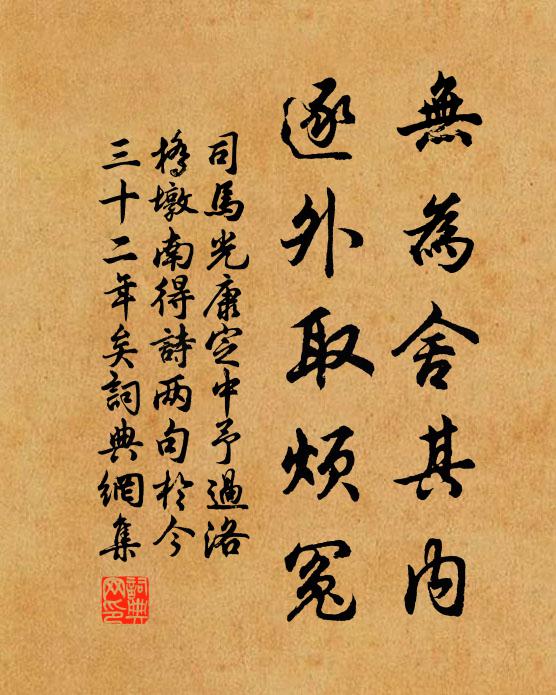 無為舍其内
逐外取煩冤
司馬光康定中予過洛
橋墩南得詩两句於今
三十二年矣詞典網集
詞典
网印